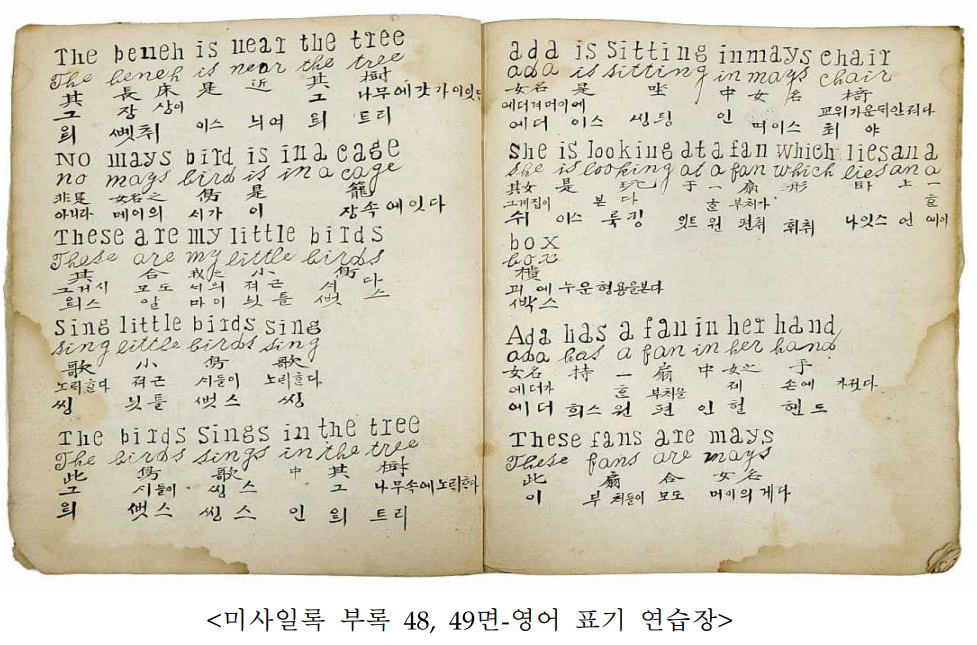 The beneh is near the tree
The beneh is near the tree
其 長床 是 近 其 樹
그 장상이 그 나무에갓가이잇다
듸 이스 늬여 듸 트리
No mays bird is in a cage
no mays bird is in a cage
非是 女名之 是 籠
아니라 메이의 이 장속에잇다
These are my little birds
These are my little birds
其 合 我之 小
그거시 모도 져근
듸스 알 마이 늿틀
Sing little birds sing
sing little birds sing
歌 小 歌
노릭한다 져근 노릭한다
씽 늿틀 씽
The birds sings in the tree
The birds sings in the tree
此 歌 中 其 樹
그 씽스 그 나무속에노릭한다
듸 씽스 인 듸 트리
ada is sitting in mays chair
ada is sitting in mays chair
女名 是 坐 中 女名 椅
에더 이스 씽팅 인 머이스
She is looking at a fan which lies an a
she is looking at a fan which lies an a
其女 是 玩 于 一 扇 形 上 一
그게집이 본다 부처가
쉬 이스 룩킹 원 편취 휘취 나잇스 언 에이
box
box
櫃
궤에누운형용을본다
Ada has a fan in her hand
ada has a fan in her hand
女名 持 一 扇 中 女之 手
에더가 손에 가졋다
에더 희스 원 편 인 헐 핸드
These fans are mays
These fans are mays
此 扇 合 女名
이 부처들이 모도 머이의게다
<미사일록 부록 48, 49면-영어 표기 연습장>